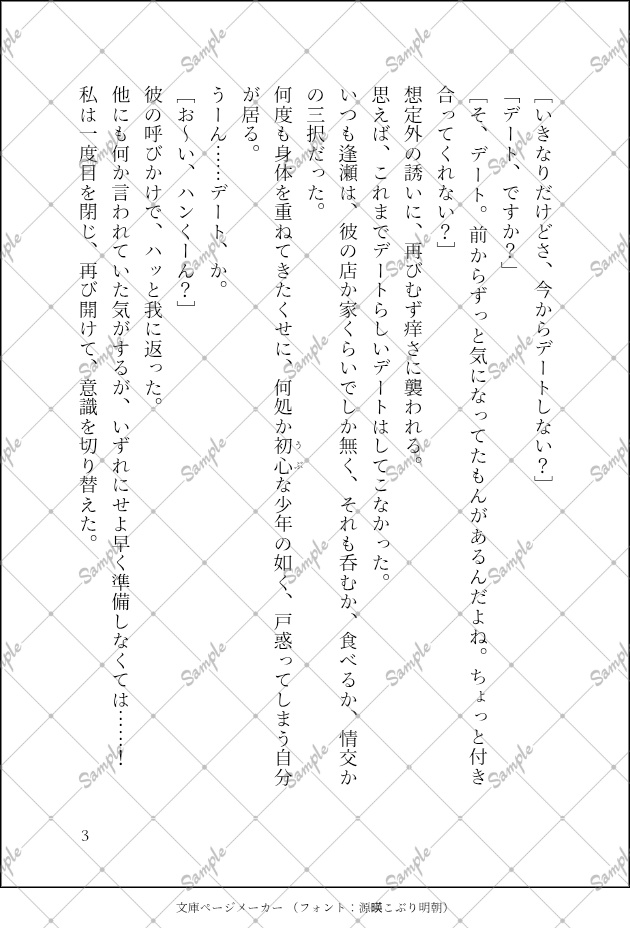 ［いきなりだけどさ、今からデートしない？］
「デート、ですか？」
［そ、デート。前からずっと気になってたもんがあるんだよね。ちょっと付き
合ってくれない？］
想定外の誘いに、再びむず痒さに襲われる。
思えば、これまでデートらしいデートはしてこなかった。
いつも逢瀬は、彼の店か家くらいでしか無く、それも呑むか、食べるか、情交か
の三択だった。
何度も身体を重ねてきたくせに、何処か初心な少年の如く、戸惑ってしまう自分
うぶ
が居る。
うーん……デート、か。
［お～い、ハンくーん？］
彼の呼びかけで、ハッと我に返った。
他にも何か言われていた気がするが、いずれにせよ早く準備しなくては……！
私は一度目を閉じ、再び開けて、意識を切り替えた。
3
文庫ページメーカー（フォント：源暎こぶり明朝）
Sample